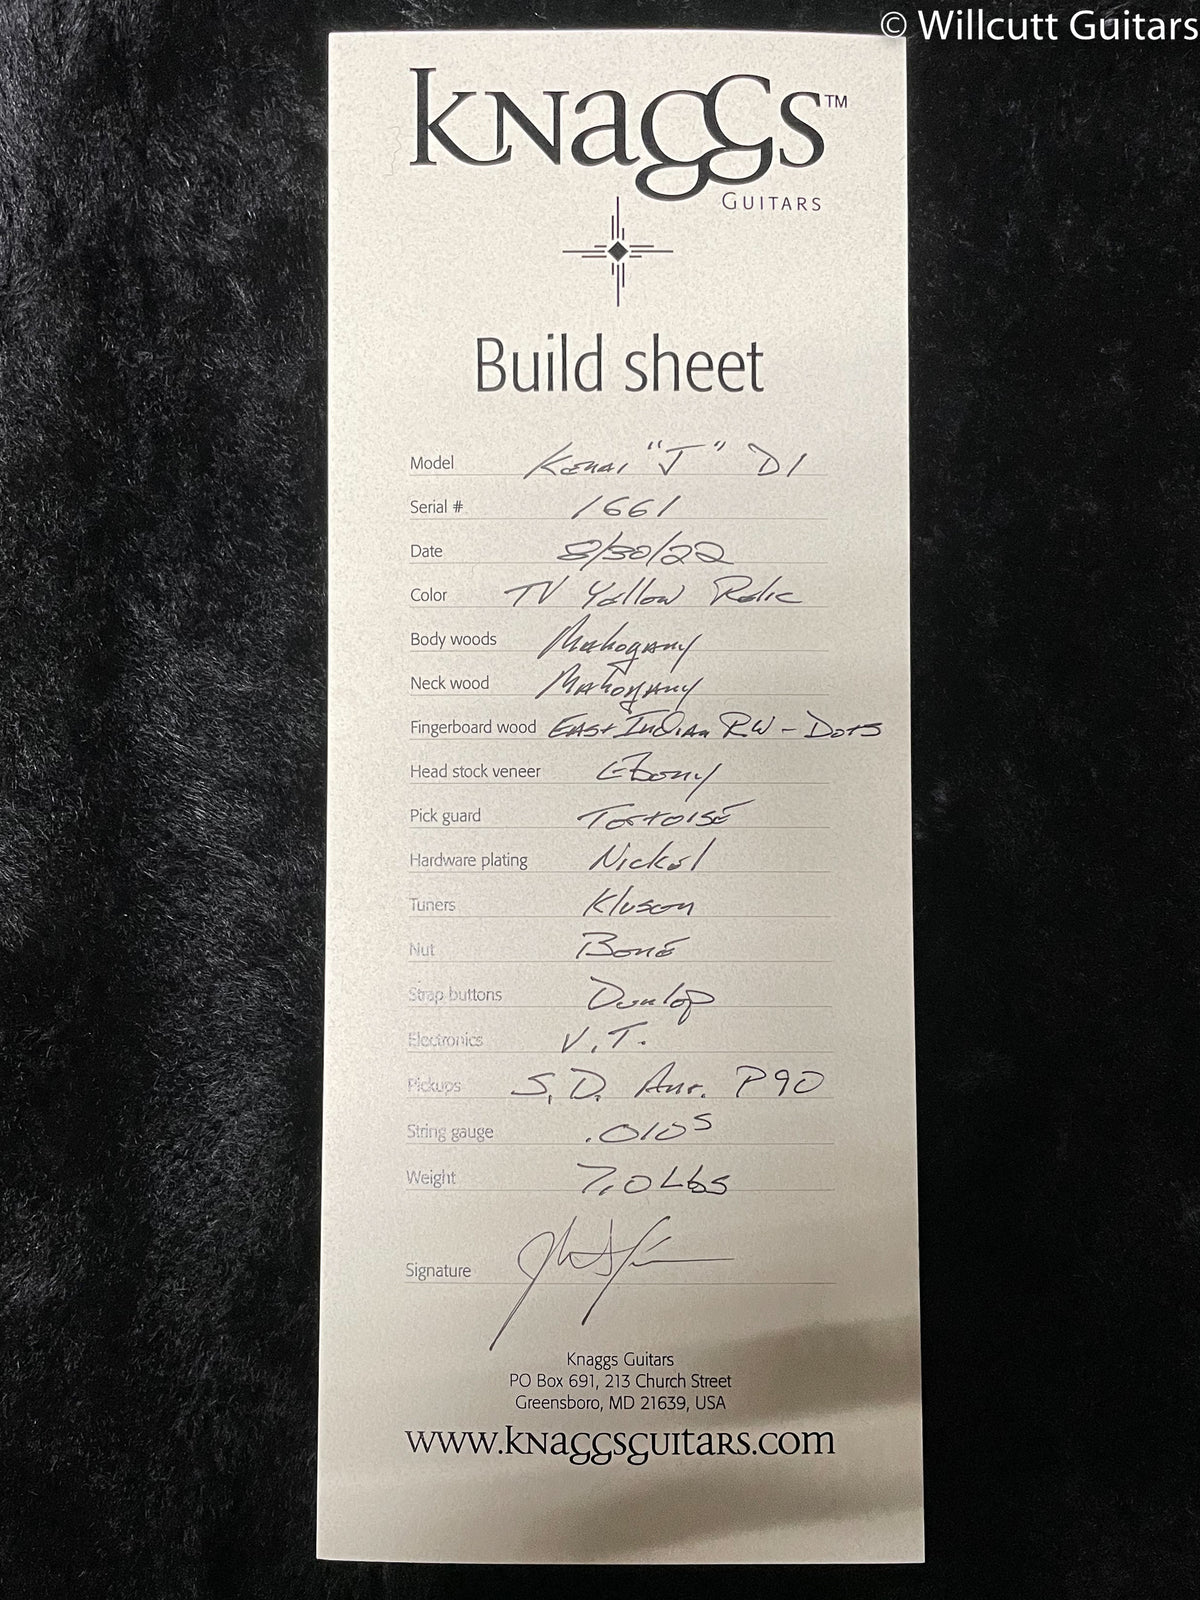 © Willcutt Guitars
Knaggs™
Guitars
Build sheet
Model Kenai "J" D1
Serial # 1661
Date 8/30/22
Color TV Yellow Relic
Body woods Mahogany
Neck wood Mahogany
Fingerboard wood East Indian RW - Dots
Head stock veneer Ebony
Pick guard Tortoise
Hardware plating Nickel
Tuners Kluson
Nut Bone
Strap buttons Dunlop
Electronics V.T.
Pickups S.D. Ant. P90
String gauge .010s
Weight 7.0 Lbs
Signature
Knaggs Guitars
PO Box 691, 213 Church Street
Greensboro, MD 21639, USA
www.knaggsguitars.com